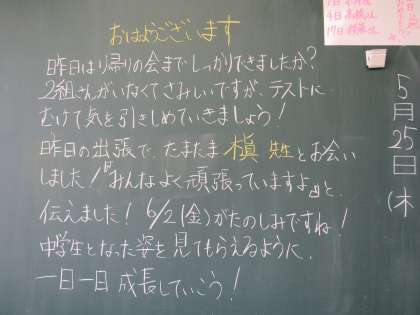 おはようございます
昨日は帰りの会までしっかりできましたか？
2組さんがいなくてさみしいですが、テストに
むけて気を引きしめていきましょう！
昨日の出張で、たまたま槇先生とお会い
しました！『みんなよく頑張っていますよ』と
伝えました！6/2(金)がたのしみですね！
中学生となった姿を見てもらえるように、
一日一日成長していこう！
5月25日(木
4日
17日